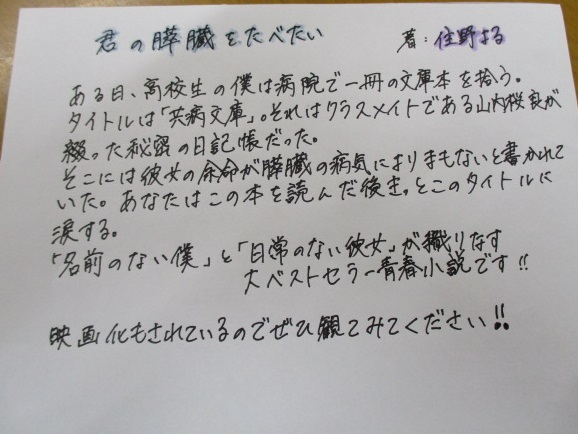 君の膵臓をたべたい 著:住野よる
ある日、高校生の僕は病院で一冊の文庫本を拾う。
タイトルは「共病文庫」。それはクラスメイトである山内桜良が
綴った秘密の日記帳だった。
そこには彼女の余命が膵臓の病気によりまもないと書かれて
いた。あなたはこの本を読んだ後きっとこのタイトルに
涙する。
「名前のない僕」と「日常のない彼女」が織りなす
大ベストセラー青春小説です!!
映画化もされているのでぜひ観てみてください!!